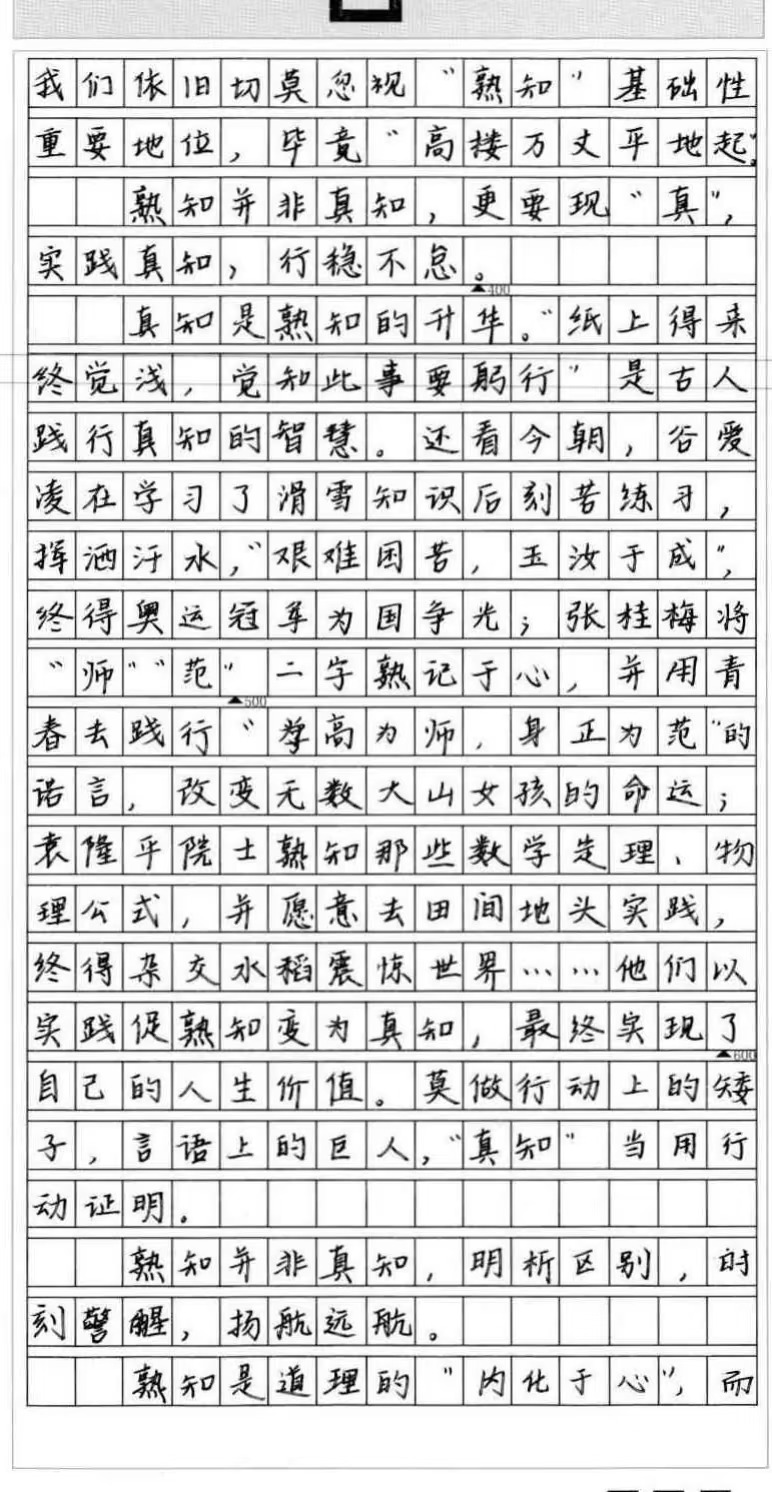 我们依旧切莫忽视“熟知”基础性
重要地位，毕竟“高楼万丈平地起”。
熟知并非真知，更要现“真”，
实践真知，行稳不怠。
▲400
真知是熟知的升华。“纸上得来
终觉浅，觉知此事要躬行”是古人
践行真知的智慧。还看今朝，谷爱
凌在学习了滑雪知识后刻苦练习，
挥洒汗水，“艰难困苦，玉汝于成”，
终得奥运冠军为国争光；张桂梅将
“师”“范”二字熟记于心，并用青
▲500
春去践行“学高为师，身正为范”的
诺言，改变无数大山女孩的命运；
袁隆平院士熟知那些数学定理、物
理公式，并愿意去田间地头实践，
终得杂交水稻震惊世界……他们以
实践促熟知变为真知，最终实现了
▲600
自己的人生价值。莫做行动上的矮
子，言语上的巨人，“真知”当用行
动证明。
熟知并非真知，明析区别，时
刻警醒，扬航远航。
熟知是道理的“内化于心”，而